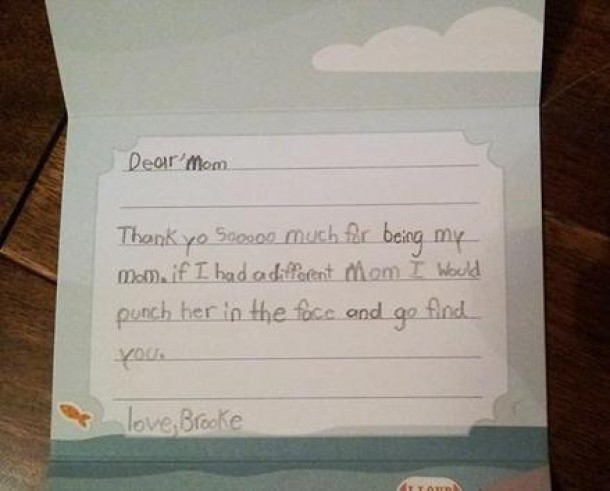 Dear'Mom
Thank yo Sooooo much for being my
mom. if I had a different Mom I would
punch her in the face and go find
you.
love, Brooke